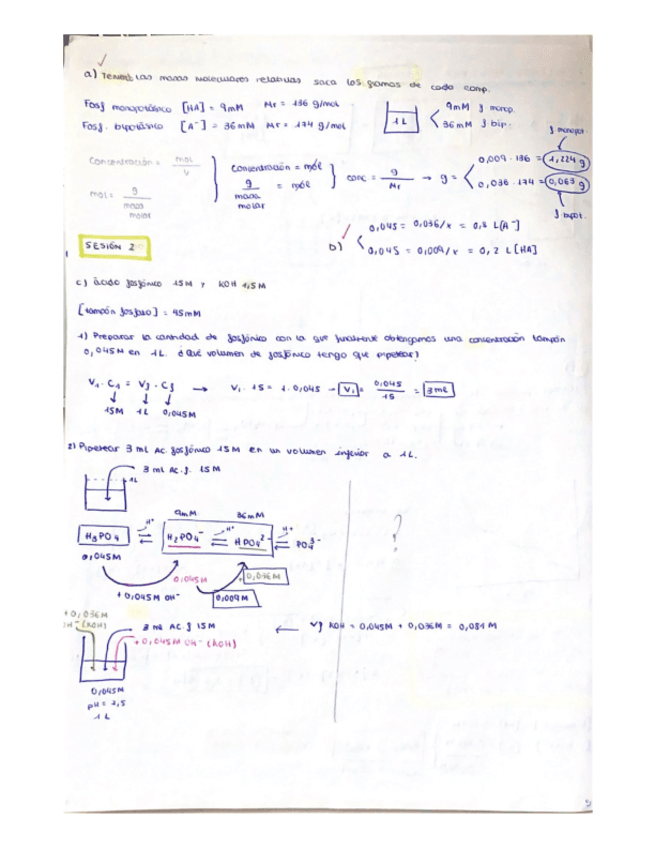 a) Teniendo las masas moleculares relativas saca los gramos de cada comp.
Fosf monopotásico [HA] = 9mM Mr = 136 g/mol
Fosf. bipotásico [A⁻] = 36mM Mr = 174 g/mol
1L
9mM f monop.
36mM f bip.
f monopot.
Concentración = mol / V
mol = g / masa molar
Concentración = mol
g / masa molar = mol
conc = g / Mr → g =
0,009 · 136 = 1,224 g
0,036 · 174 = 0,063 g
f bipot.
SESIÓN 2
b)
0,045 = 0,036/x = 0,8 L[A⁻]
0,045 = 0,009/x = 0,2 L[HA]
c) ácido fosfónico 15M y KOH 1,5M
[tampón fosfaso] = 45mM
1) Preparar la cantidad de fosfónico con la que finalmente obtengamos una concentración tampón
0,045M en 1L. ¿Qué volumen de fosfónico tengo que pipetear?
V₁ · C₁ = Vf · Cf → V₁ · 15 = 1 · 0,045 → V₁ = 0,045 / 15 = 3ml
15M 1L 0,045M
2) Pipetear 3 ml Ac. fosfónico 15M en un volumen inferior a 1L.
3 ml Ac. f. 15M
1L
9mM 36mM
H₃PO4 ⇌ H⁺ H₂PO4⁻ ⇌ H⁺ HPO4²⁻ ⇌ H⁺ PO4³⁻
?
0,045M
0,045M
+ 0,036M
+ 0,045M OH⁻
0,009M
+ 0,036M
OH⁻ (KOH)
3 ml Ac. f 15M
+ 0,045M OH⁻ (KOH)
← Vf KOH = 0,045M + 0,036M = 0,081M
0,045M
1L